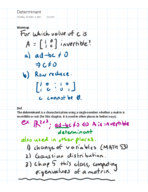 Determinant
Warmup
For which value of c is
A = [1 1; 1 c] invertible?
a) ad-bc ≠ 0
⇒ c ≠ 0
b) Row reduce
c cannot be 0.
Def.
The determinant is a characterization using a single number whether a matrix is
invertible or not (for this chapter). It is used in other places in better ways.
ex ℝ²ˣ², ad-bc ≠ 0 ⇔ A is invertible
determinant
also used in other places:
1) change of variables (MATH 53)
2) Gaussian distribution
3) Chapt 5 this class, computing
eigenvalues of a matrix